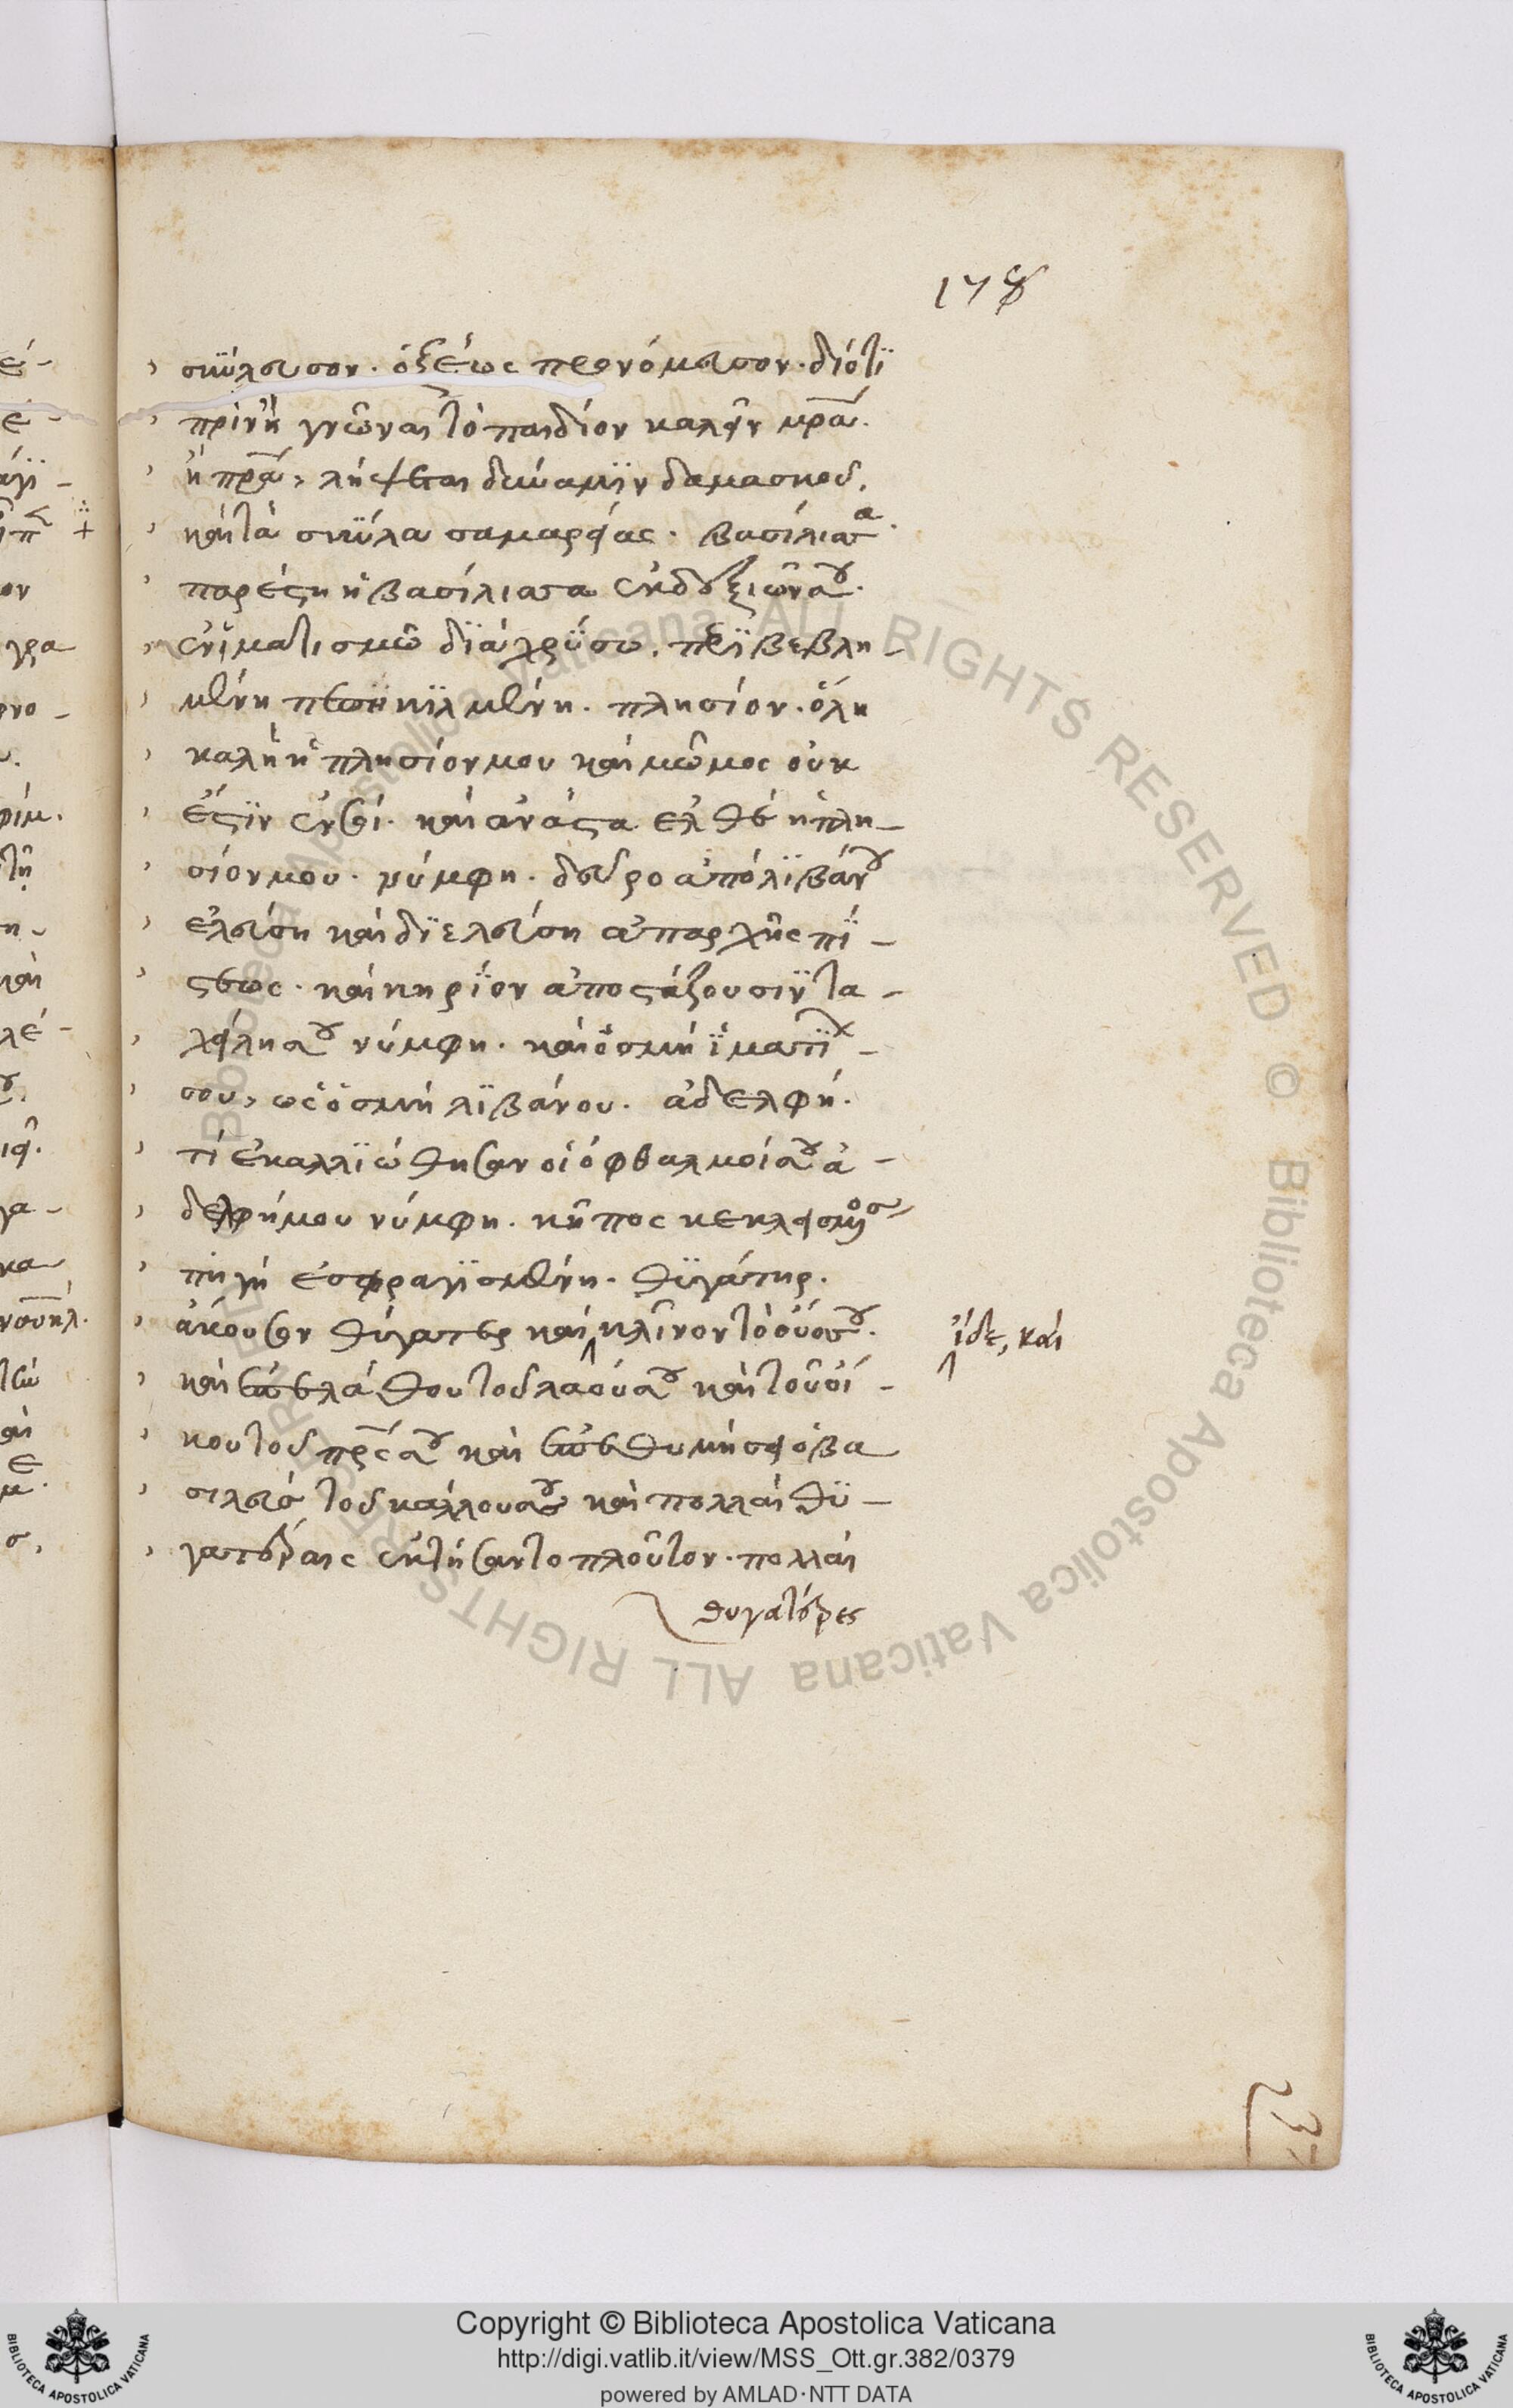 178
σκύλευσον. ὀξέως προνόμευσον. διότι
πρινἢ γνῶναι τὸ παιδίον καλεῖν μρα.
ἢ πρα, λήψεται δύναμϊν δαμασκοῦ.
καὶ τὰ σκῦλα σαμαρείας. βασίλισσα.
παρέστη ἡ βασίλισσα ἐκ δεξιῶν σου.
ἐν ἱματισμῶ διαχρύσω. περϊβεβλη
μένη πεποικϊλμένη. πλησίον. ὅλη
καλὴ ἡ πλησίον μου καὶ μῶμος οὐκ
ἔστϊν ἐν σοί. καὶ ἀνάστα ἐλθὲ ἡ πλη-
σίον μου. νύμφη. δεῦρο ἀπὸ λϊβάνου
ἐλεύση καὶ δϊελεύση ἀπαρχῆς πί-
στεως. καὶ κηρίον ἀποστάζουσϊν τα-
χείλη σου νύμφη. καὶ ὀσμὴ ϊματϊ-
σου, ὡς ὀσμὴ λϊβάνου. ἀδελφή.
τί ἐκαλλϊώθησαν οἱ ὀφθαλμοί σου ἀ-
δελφή μου νύμφη. κῆπος κεκλεισμένος
πηγὴ ἐσφραγϊσμένη. θϋγάτηρ.
ἄκουσον θύγατερ καὶ κλῖνον τὸ οὖς σου.
ἴδε, καὶ
καὶ ἐπελάθου τοῦ λαοῦ σου καὶ τοῦ οἴ-
κου τοῦ πρς σου καὶ ἐπεθυμήσει ὁ βα
σιλεὺς τοῦ κάλλους σου καὶ πολλαὶ θϋ-
γατέραις ἐκτήσαντο πλοῦτον. πολλαὶ
θυγατέρες
Copyright © Biblioteca Apostolica Vaticana
http://digi.vatlib.it/view/MSS_Ott.gr.382/0379
powered by AMLAD·NTT DATA